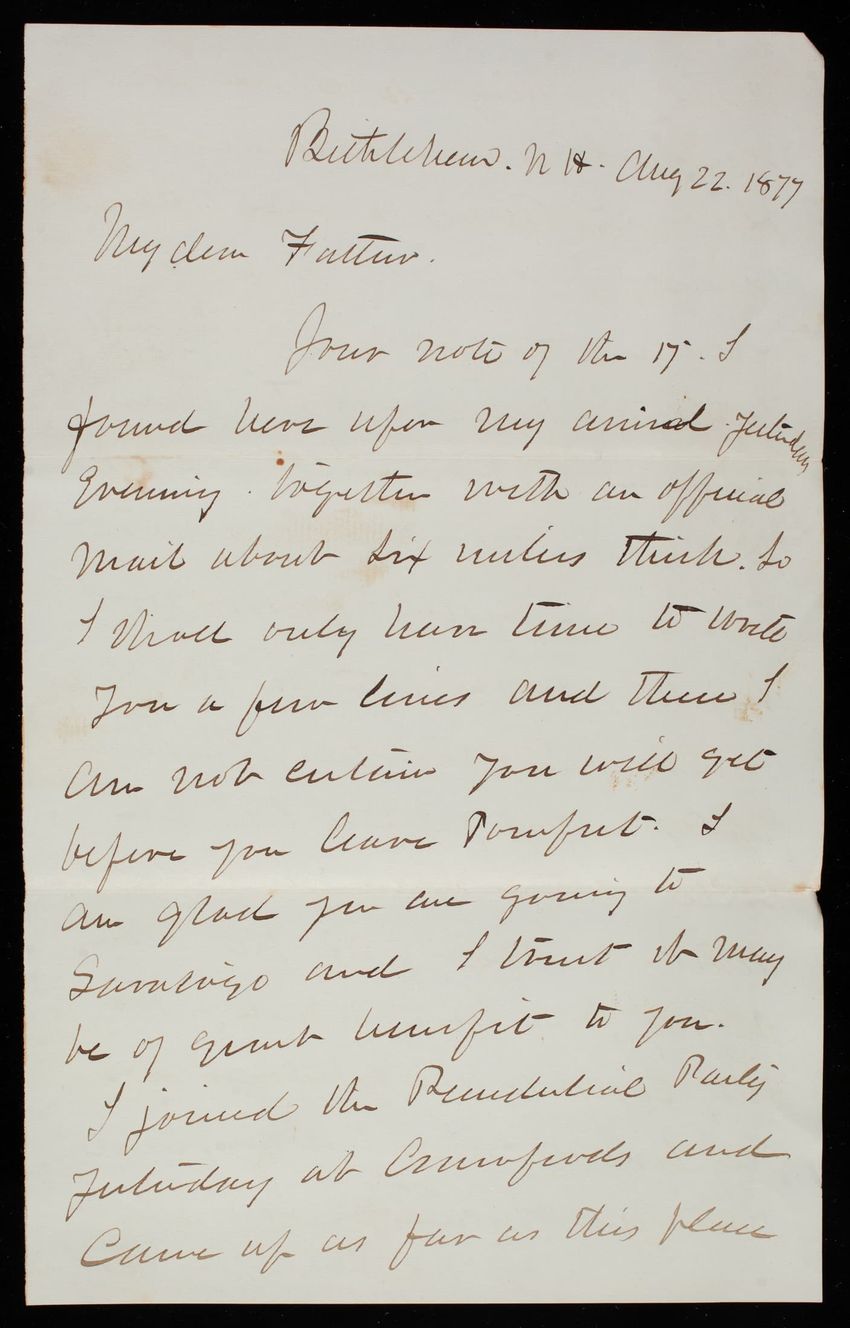 Bethlehem. N H. Aug 22. 1877
My dear Father.
Your note of the 17. I
found here upon my arrival yesterday
Evening. together with an official
mail about six inches thick. So
I shall only have time to write
you a few lines and these I
am not certain you will get
before you leave Pomfret. I
am glad you are going to
Saratoga and I trust it may
be of great benefit to you.
I joined the Presidential Party
yesterday at Crawfords and
Came up as far as this place